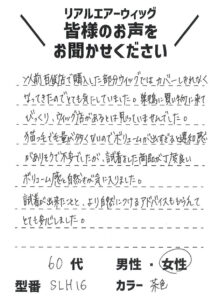 リアルエアーウィッグ
皆様のお声を
お聞かせください
以前百貨店で購入した部分ウィッグではカバーしきれなく
なってきたのでとても気にしていました。巣鴨に買い物に来て
びっくり、ウィッグ店があるとは思っていませんでした。
猫っ毛で毛量が多くないのでボリュームが出すぎると違和感
がありそうで不安でしたが、試着した商品が丁度良い
ボリューム感と自然さが気に入りました。
試着が出来たことと、より自然につけるアドバイスももらえて
とても喜びました。
60 代
男性・女性
型番 SLH16 カラー 茶色